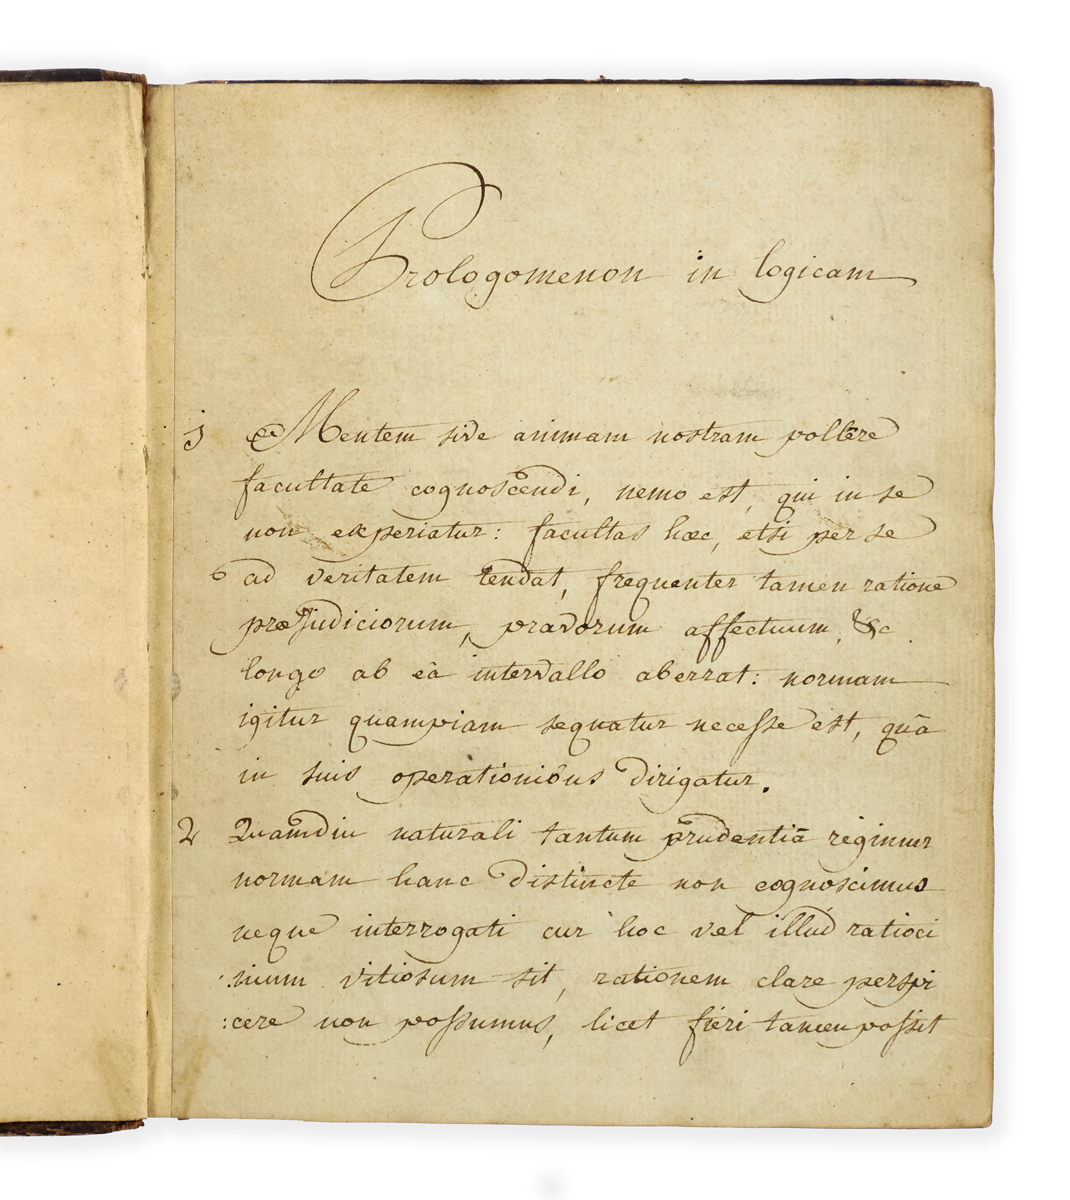 Prologomenon in logicam
1 Mentem sive animam nostram pollere
facultate cognoscendi, nemo est, qui in se
non experiatur: facultas hæc, etsi per se
ad veritatem tendat, frequenter tamen ratione
præjudiciorum, pravorum affectuum, &c
longo ab eâ intervallo aberrat: normam
igitur quampiam sequatur necesse est, quâ
in suis operationibus dirigatur.
2 Quamdiu naturali tantum prudentiâ regimur
normam hanc distincte non cognoscimus
neque interrogati cur hoc vel illud ratioci
:nium vitiosum sit, rationem clare perspi
:cere non possumus, licet fieri tamen possit